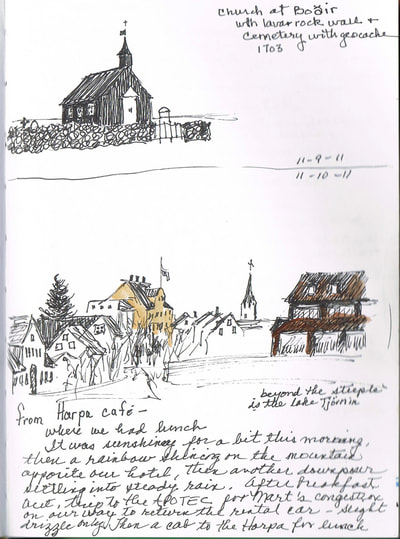 Church at Boðir
with lava rock wall +
cemetery with geocache
1703
11-9-11
11-10-11
beyond the steeple
is the lake Tjörnin
from Harpa café -
where we had lunch
It was sunshiney for a bit this morning,
then a rainbow shining on the mountain
opposite our hotel, then another downpour
settling into steady rain. After breakfast
out, trip to the APOTEC for Mart's congestion
on our way to return the rental car - slight
drizzle only. Then a cab to the Harpa for lunch